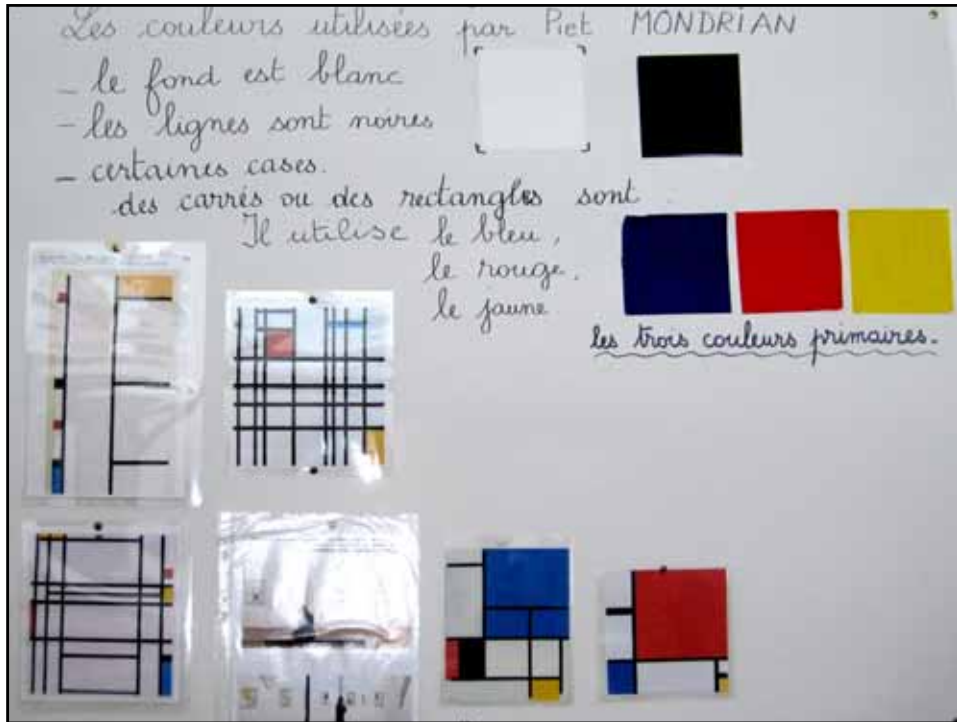 Les couleurs utilisées par Piet MONDRIAN
- le fond est blanc
- les lignes sont noires
- certaines cases.
.des carrés ou des rectangles sont.
Il utilise le bleu,
le rouge.
le jaune
les trois couleurs primaires.